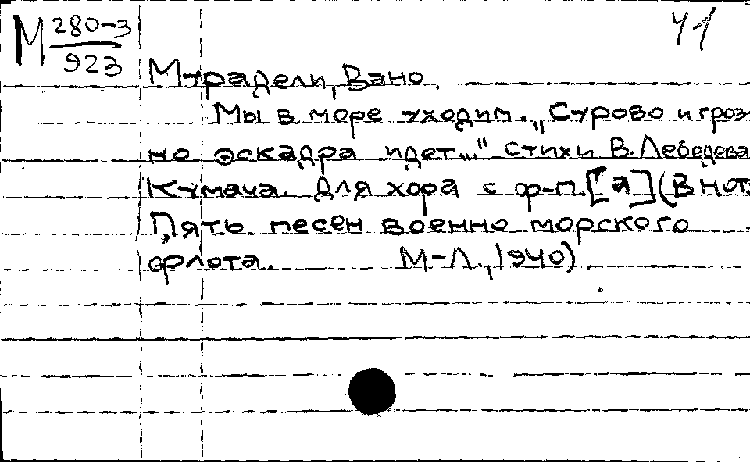 М 280-3
923
41
Мурадели, Вано.
Мы в море уходим. „Сурово и гроз
но эскадра идет..." Стихи В. Лебедева
Кумача. Для хора с ф-п. [а] (В нот:
Пять песен военно морского
флота. М-Л., 1940).